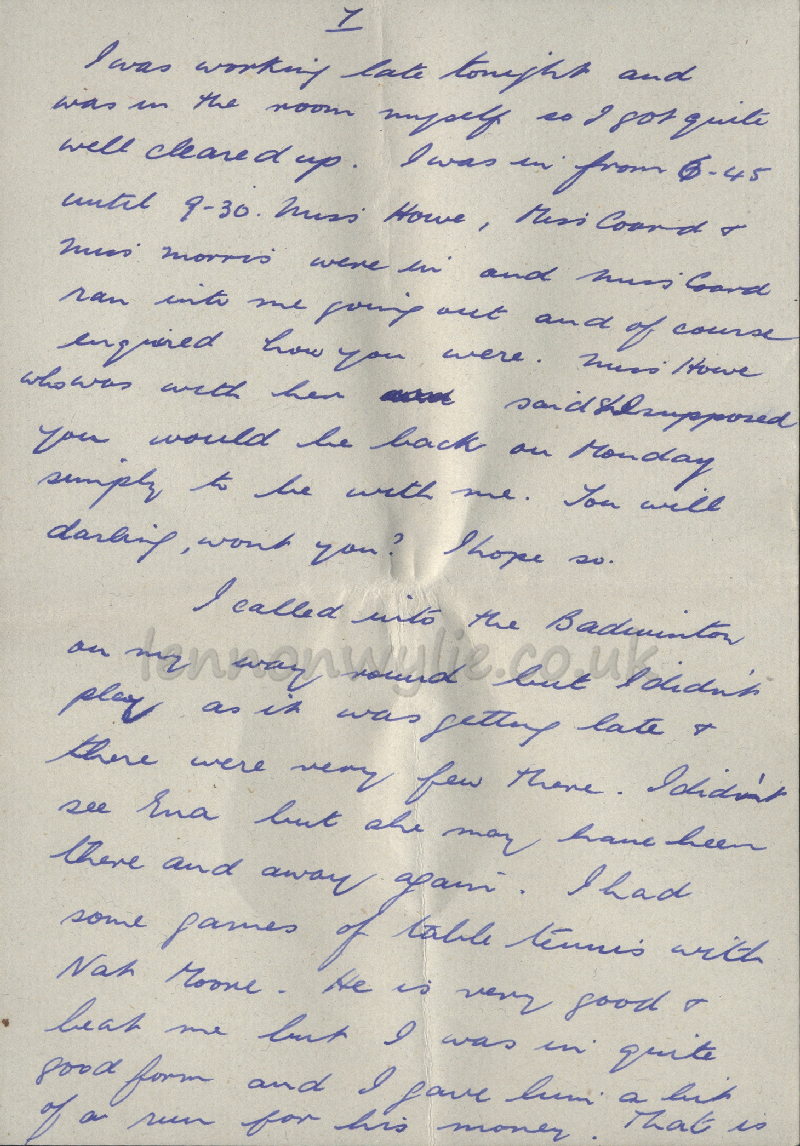 7
I was working late tonight and
was in the room myself so I got quite
well cleared up. I was in from 6-45
until 9-30. Miss Howe, Miss Coard &
Miss Morris were in and Miss Coard
ran into me going out and of course
enquired how you were. Miss Howe
who was with her said she supposed
you would be back on Monday
simply to be with me. You will
darling, wont you? I hope so.
I called into the Badminton
on my way round but I didn't
play as it was getting late &
there were very few there. I didn't
see Ena but she may have been
there and away again. I had
some games of table tennis with
Nat Moore. He is very good &
beat me but I was in quite
good form and I gave him a bit
of a run for his money. That is
lennonwylie.co.uk